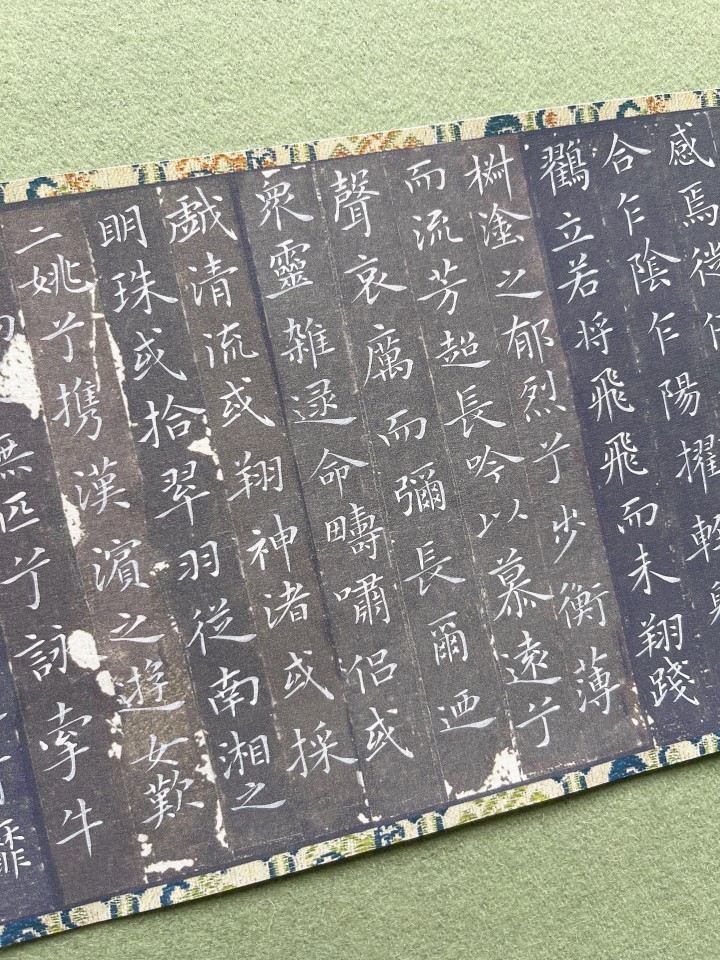 感焉徙
合乍陰乍陽擢輕軀
鸖立若将飛飛而未翔踐
椒塗之郁烈兮步衡薄
而流芳超長吟以慕遠兮
聲哀厲而彌長爾迺
衆靈雜遝命疇嘯侶或
戯清流或翔神渚或採
明珠或拾翠羽從南湘之
二姚兮携漢濱之遊女歎
無匹兮詠牽牛
靡